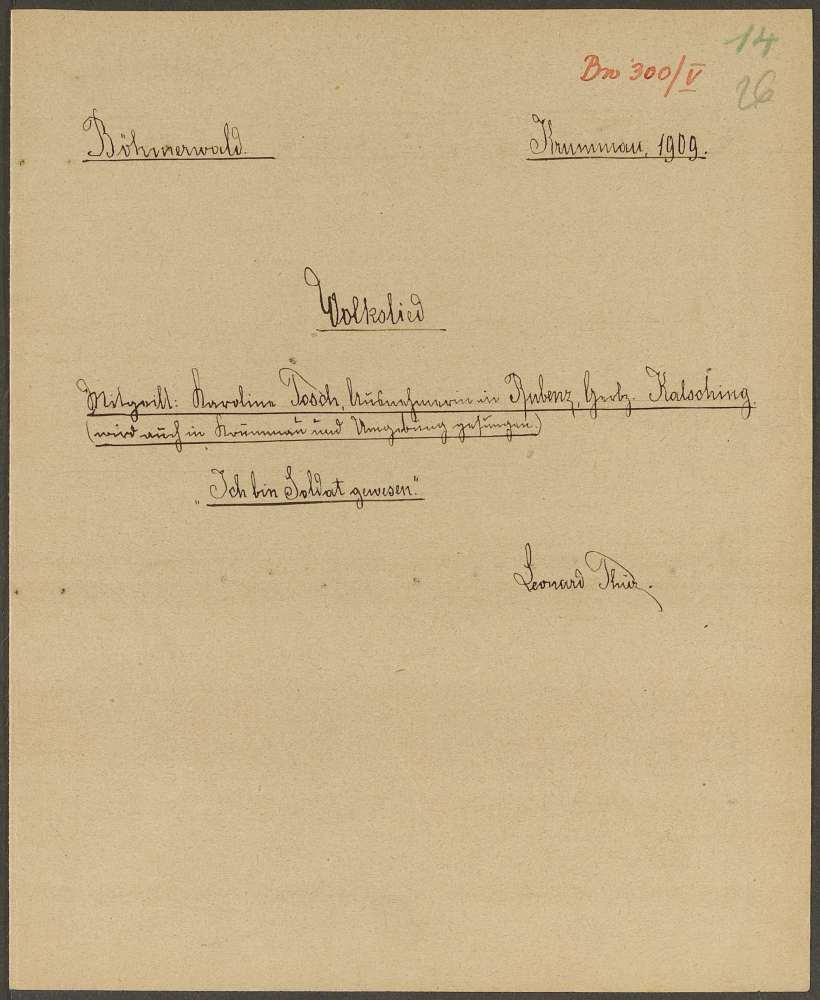 14
Bn 300/V
26
Böhmerwald.
Krummau, 1909.
Volkslied
Mitgeilt: Karoline Tosch, Ausnehmerin in Rubenz, Gerbz. Kalsching.
(wird auch in Krummau und Umgebung gesungen.)
„Ich bin Soldat gewesen."
Leonard